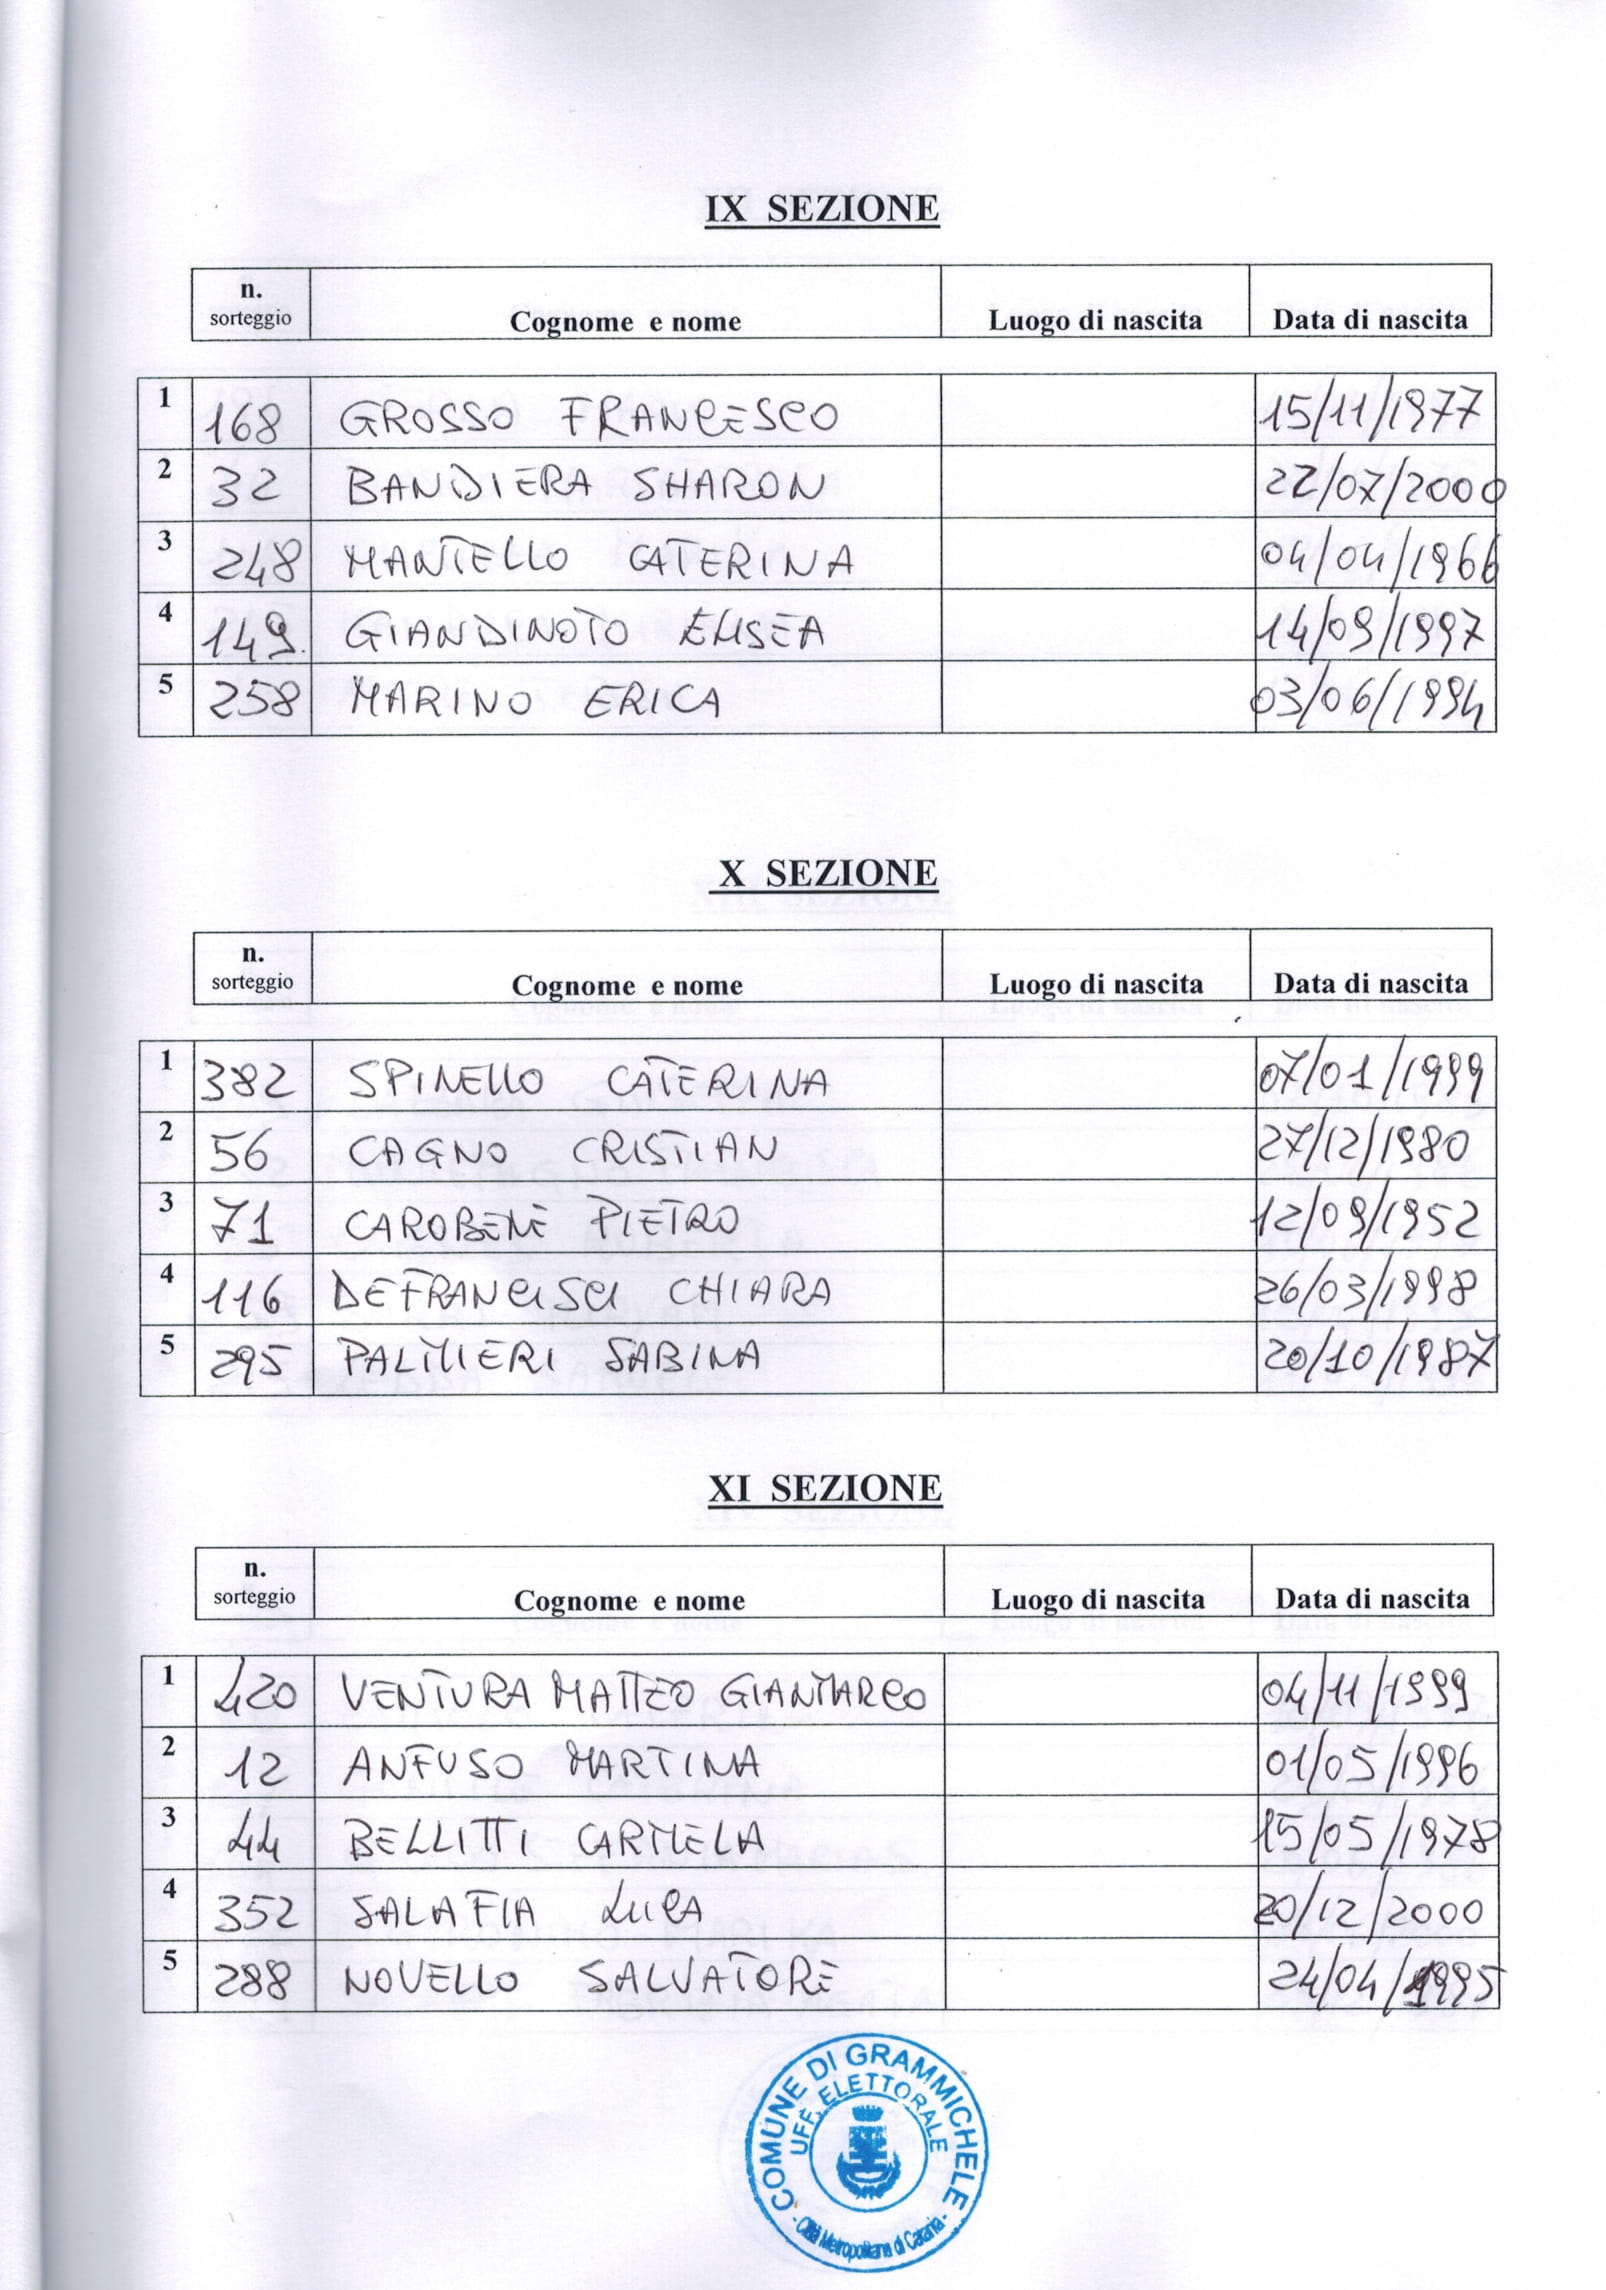 IX SEZIONE
n. sorteggio Cognome e nome Luogo di nascita Data di nascita
1 168 GROSSO FRANCESCO 15/11/1977
2 32 BANDIERA SHARON 22/07/2000
3 248 MANTELLO CATERINA 04/04/1966
4 149. GIANDINOTO ELISEA 14/09/1997
5 258 MARINO ERICA 03/06/1994
X SEZIONE
n. sorteggio Cognome e nome Luogo di nascita Data di nascita
1 382 SPINELLO CATERINA 07/01/1999
2 56 CAGNO CRISTIAN 27/12/1980
3 71 CAROBENE PIETRO 12/09/1952
4 116 DEFRANCISCI CHIARA 26/03/1998
5 295 PALMIERI SABINA 20/10/1987
XI SEZIONE
n. sorteggio Cognome e nome Luogo di nascita Data di nascita
1 420 VENTURA MATTEO GIANMARCO 04/11/1999
2 12 ANFUSO MARTINA 01/05/1996
3 44 BELLITTI CARMELA 15/05/1978
4 352 SALAFIA LUCA 20/12/2000
5 288 NOVELLO SALVATORE 24/04/1995
COMUNE DI GRAMMICHELE
UFF. ELETTORALE
- Città Metropolitana di Catania -